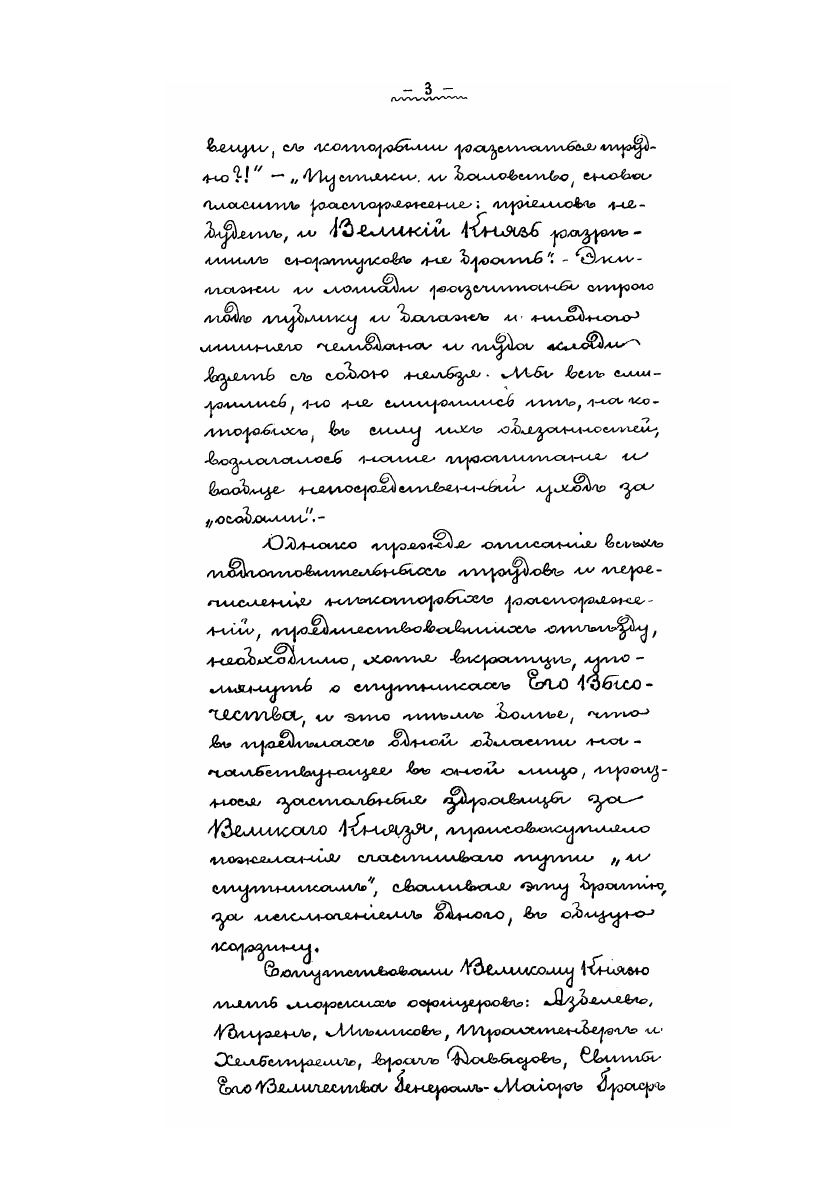 – 3 –
вещи, съ которыми разстаться труд-
но?!" – „Пустяки и баловство, снова
гласитъ распоряжение: прiемовъ не-
будетъ, и Великiй Князь разрѣ-
шилъ сюртуковъ не брать". – Эки-
пажи и лошади разсчитаны строго
подъ публику и багажъ и ни одного
лишняго чемодана и пуда клади
взять съ собою нельзя. Мы всѣ сми-
рились, но не смирились тѣ, на ко-
торыхъ, въ силу ихъ обязанностей,
возлагалось наше пропитание и
вообще непосредственный уходъ за
„особами". –
Однако прежде описанiя всѣхъ
подготовительныхъ трудовъ и пере-
численiя нѣкоторыхъ распоряже-
нiй, предшествовавшихъ отъѣзду,
необходимо, хотя вкратцѣ, упо-
мянуть о спутникахъ Его Высо-
чества, и это тѣмъ болѣе, что
въ предѣлахъ одной области на-
чальствующее въ оной лицо, произ-
нося застольные здравицы за
Великаго Князя, присовокупляло
пожеланiя счастливаго пути „и
спутникамъ", сваливая эту братiю,
за исключенiемъ одного, въ общую
корзину.
Сопутствовали Великому Князю
пять морскихъ офицеровъ: Азбелевъ,
Виренъ, Мѣшковъ, Трахтенбергъ и
Хельстремъ, врачъ Давыдовъ, Свиты
Его Величества Генералъ-Маiоръ Графъ